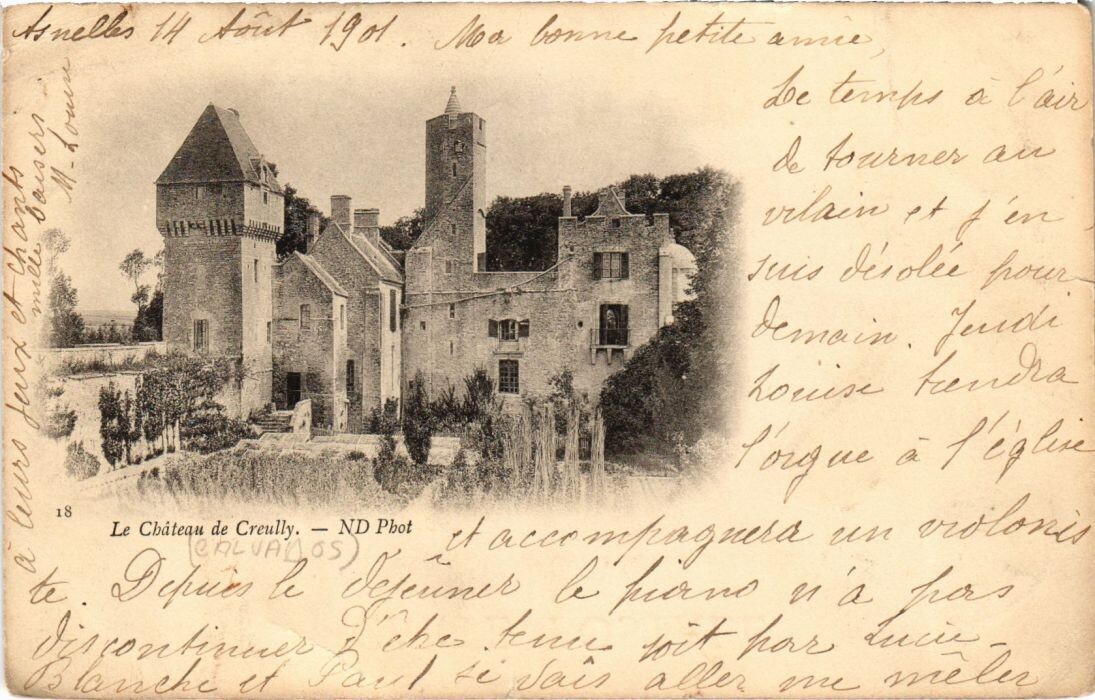 Asnelles 14 Août 1901. Ma bonne petite amie,
Le temps a l'air
de tourner au
vilain et j'en
suis désolée pour
demain. Jeudi
Louise tiendra
l'orgue à l'église
et accompagnera un violonis
te. Depuis le déjeûner le piano n'a pas
discontinuer d'être tenu soit par Lucie
Blanche et Paul si vais aller me mêler
à leurs jeux et chants
mille baisers
M. Louise
18
Le Château de Creully. — ND Phot
(CALVADOS)